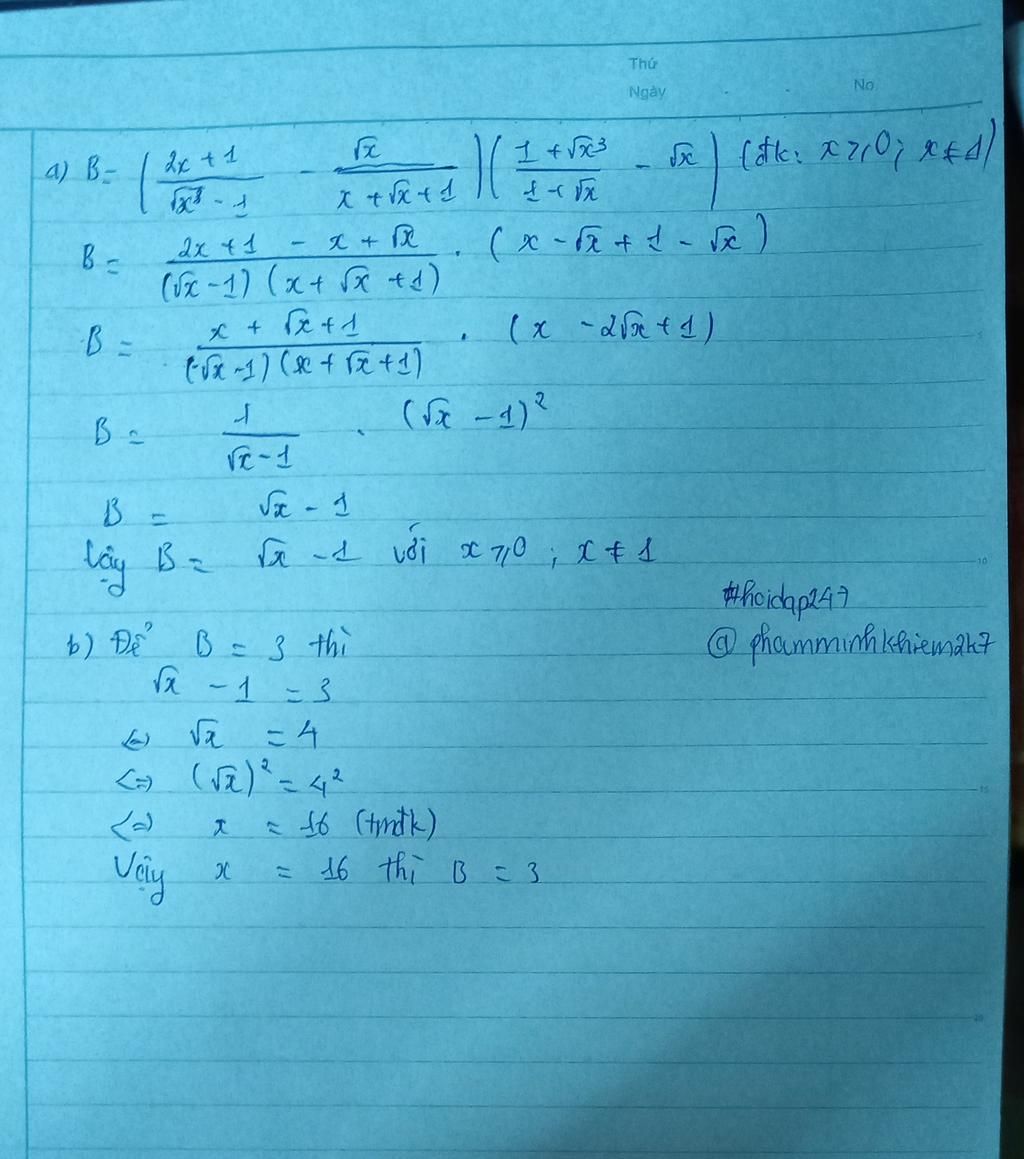 Thứ
Ngày No
a) B = (2x + 1 / √x³ - 1 - √x / x + √x + 1)(1 + √x³ / 1 + √x - √x) (đk: x ⩾ 0; x ≠ 1)
B = 2x + 1 - x + √x / (√x - 1)(x + √x + 1) . (x - √x + 1 - √x)
B = x + √x + 1 / (√x - 1)(x + √x + 1) . (x - 2√x + 1)
B = 1 / √x - 1 . (√x - 1)²
B = √x - 1
Vậy B = √x - 1 với x ⩾ 0 ; x ≠ 1
#hoidap247
b) Để B = 3 thì
@phamminhkhiem2k7
√x - 1 = 3
<=> √x = 4
<=> (√x)² = 4²
<=> x = 16 (tmđk)
Vậy x = 16 thì B = 3